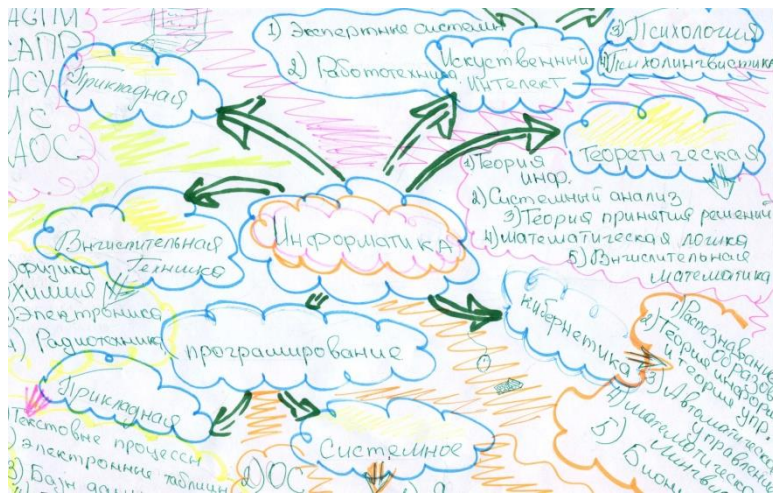 АСПМ
САПР
АСУ
АОС
Прикладная
1) Экспертные систем
2) Работотехника
Искуственный
Интелект
3) Психология
4) Психолингвистика
Теоретическая
1) Теория
инф.
2) Системный анализ
3) Теория принятия решений
4) математическая логика
5) Вычислительная
математика
Информатика
Вычислительная
Техника
физика
Химия
Электроника
Радиотехника
программирование
Кибернетика
1) Распознавание
образов
2) Теория информ
и теория упр.
3) Автоматическ
управления
4) математическа
лингви
5) Биони
Прикладная
Текстовые процессы
электронные таблицы
3) Базы
Системное
1) ОС